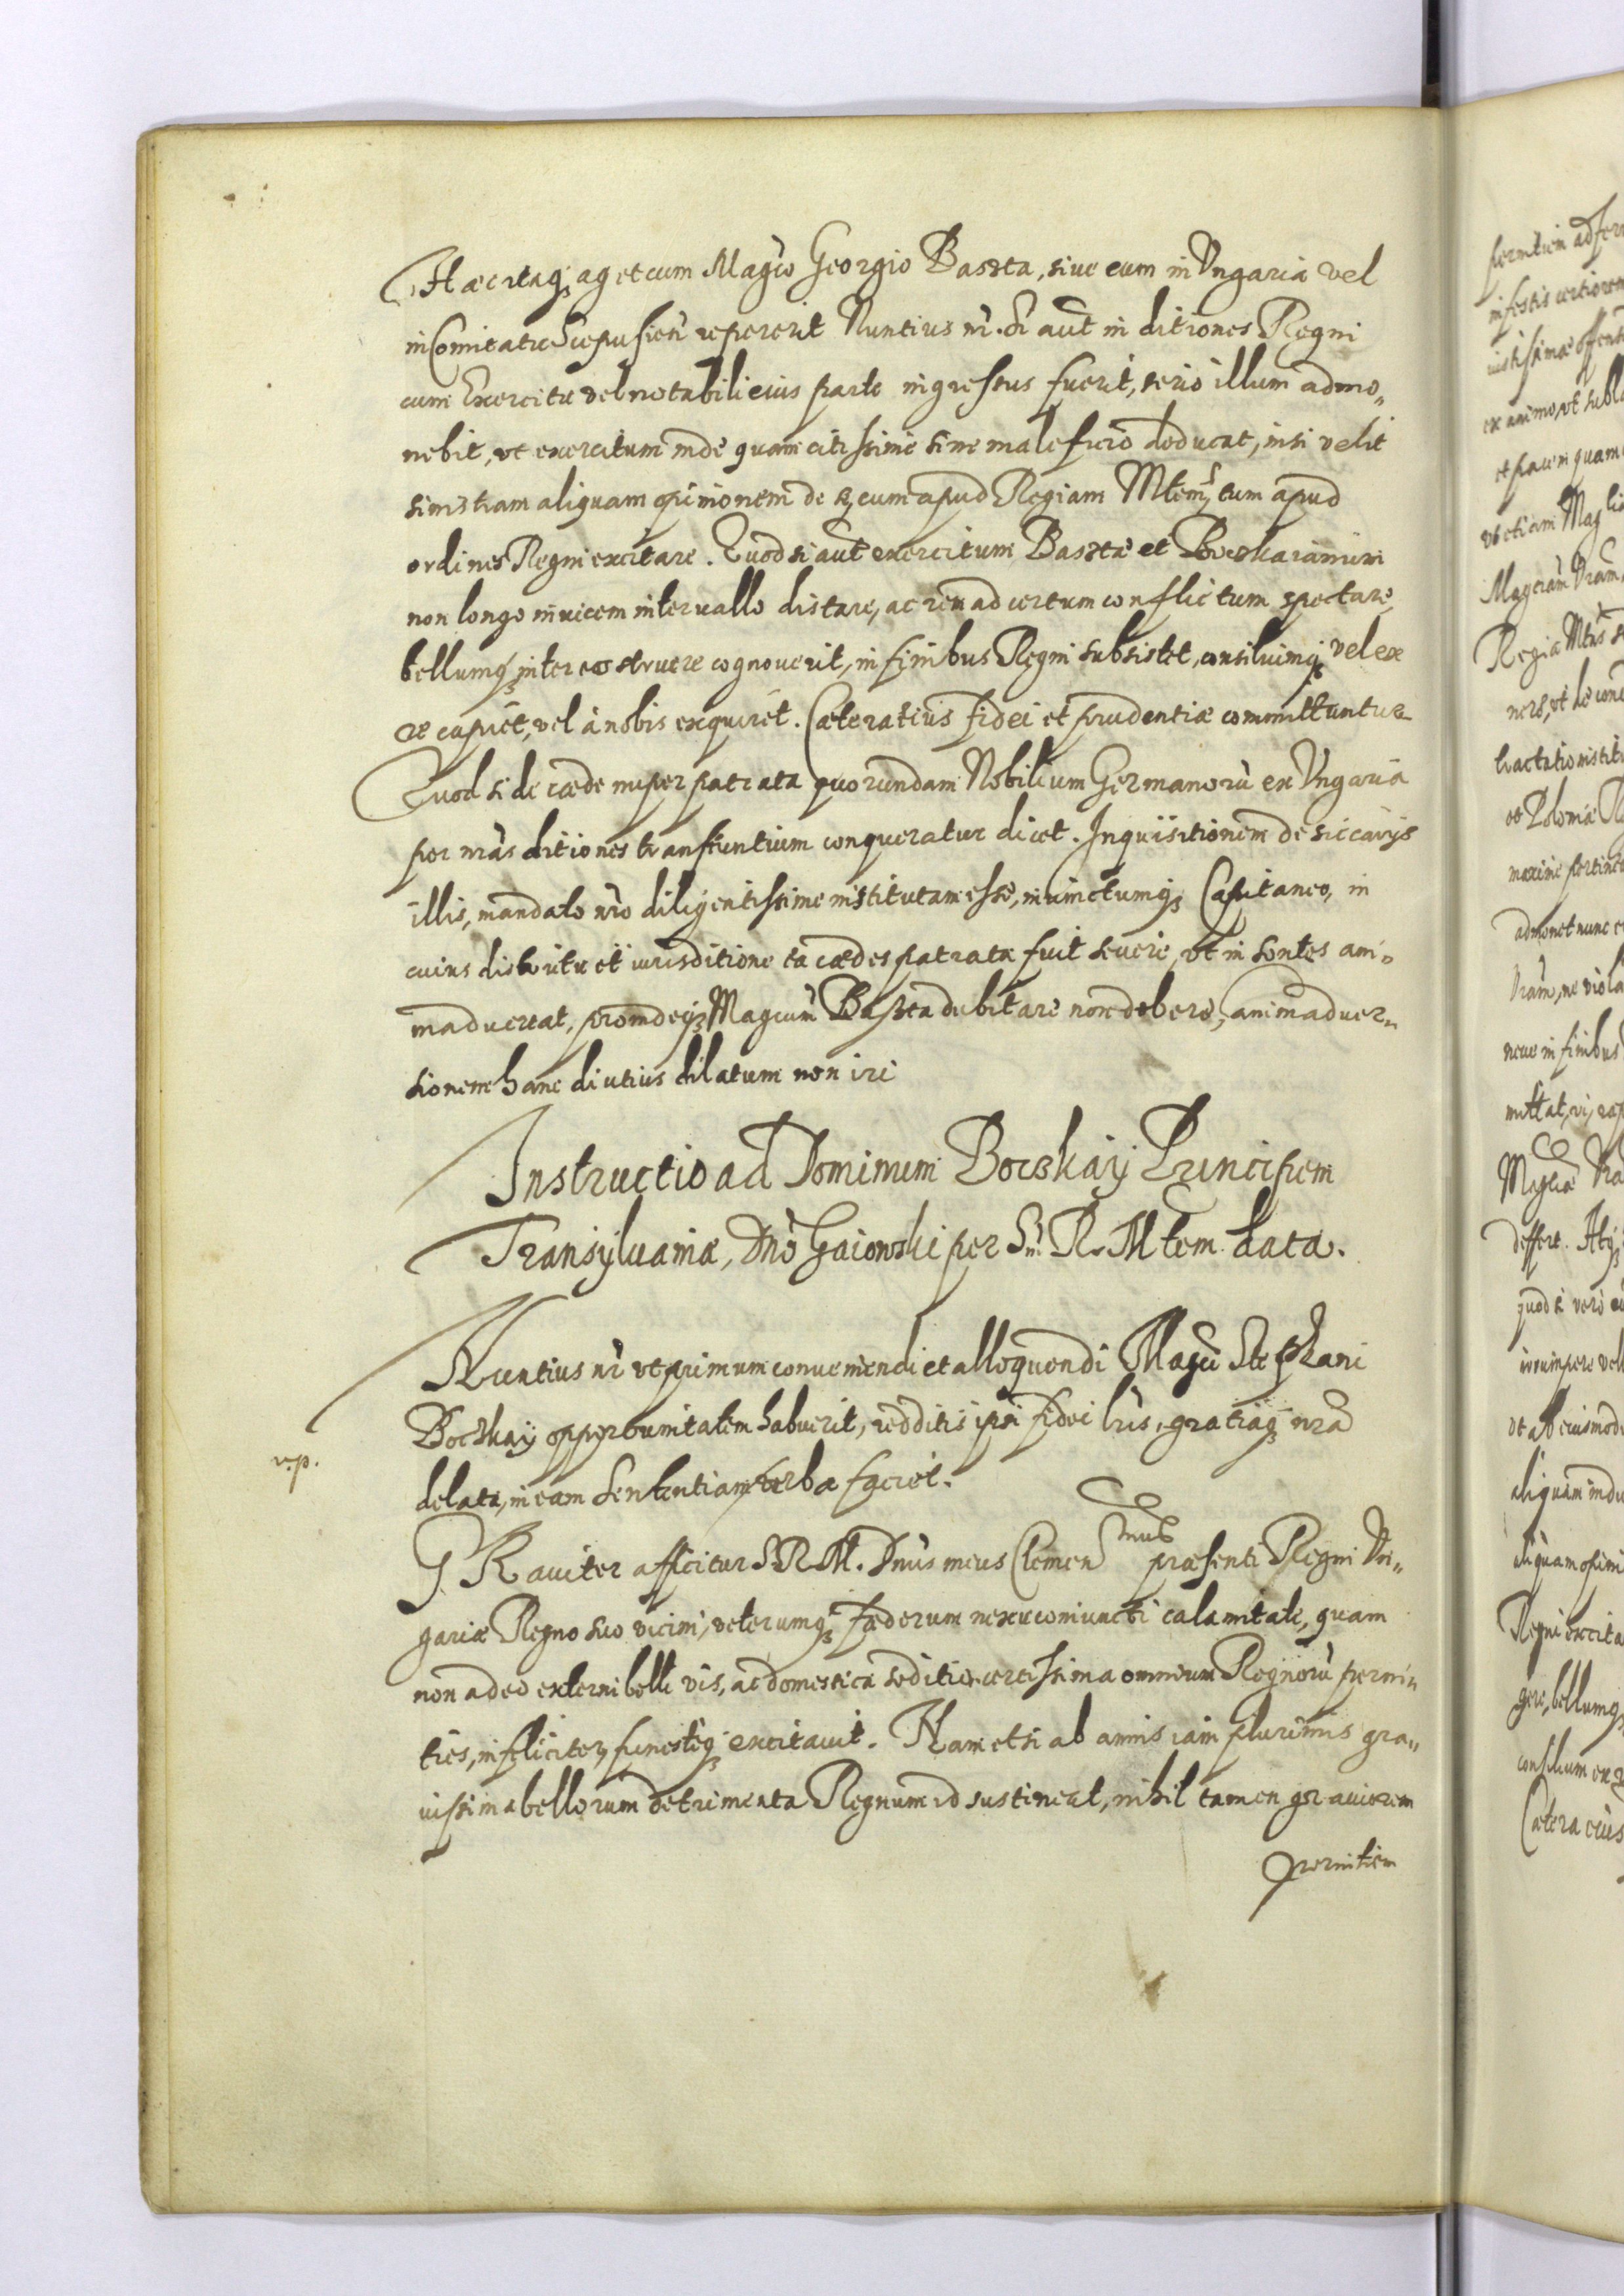 Haec itaq; aget cum Magco Georgio Baszta, siue eum in Vngaria vel
in Comitatu Scepusien repererit Nuntius nr. Si aut in ditiones Regni
cum Exercitu vel notabili eius parte ingressus fuerit, serio illum admo„
nebit, vt exercitum inde quam citissime sine maleficio deducat, nisi velit
sinistram aliquam opinionem de se, cum apud Regiam Mtem, tum apud
ordines Regni excitare. Quod si aut exercitum Basztae et Bocskaianum
non longo inuicem interuallo distare, ac rem ad certum conflictum spectare,
bellumq; inter eos struere cognouerit, in finibus Regni subsistet, consiliumq; vel ex
re capiet, vel à nobis exquiret. Caetera eius fidei et prudentiae committuntur
Quod si de caede nuper patrata quorundam Nobilium Germanorũ ex Vngaria
per nras ditiones transeuntium conqueratur dicet. Inquisitionem de siccarijs
illis, mandato nro diligentissime institutam esse, iniunctumq; Capitaneo, in
cuius districtu et iurisditione ea caedes patrata fuit seuere, vt in sontes ani„
maduertat, proindeq; Magcum Baszta dubitare non debere, animaduer„
sionem hanc diutius dilatum non iri
Instructio ad Dominum Bocskay Principem
Transyluaniae, Dno Gaiowski per S. R. Mtem data.
Nuntius nr vt primum conueniendi et alloquendi Magci Stephani
Bocskay opportunitatem habuerit, redditis ipsi fidei lris, gratiaq; nra
delata, in eam sententiam verba faciet.
v.p.
GRauiter afficitur S. R. M. Dnus meus Clemenmus praesenti Regni Vn„
gariae Regno suo vicini, veterumq; faederum nexu coniuncti calamitate, quam
non adeo externi belli vis, ac domestica seditio, certissima omnium Regnorũ perni„
ties, infeliciter, funesteq; excitauit. Nam etsi ab annis iam plurimis gra„
uissima bellorum detrimenta Regnum id sustineat, nihil tamen grauiorem
pernitiem